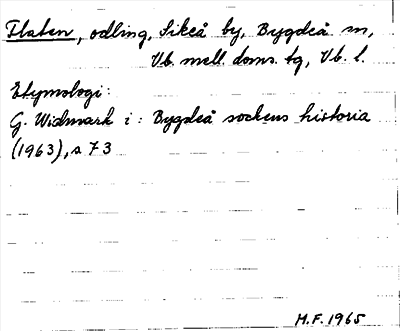 Flaten, odling, Sikeå by, Bygdeå sn,
Vb. mell. doms. tg, Vb. l.
Etymologi:
G. Widmark i: Bygdeå sockens historia
(1963), s 73
H.F. 1965